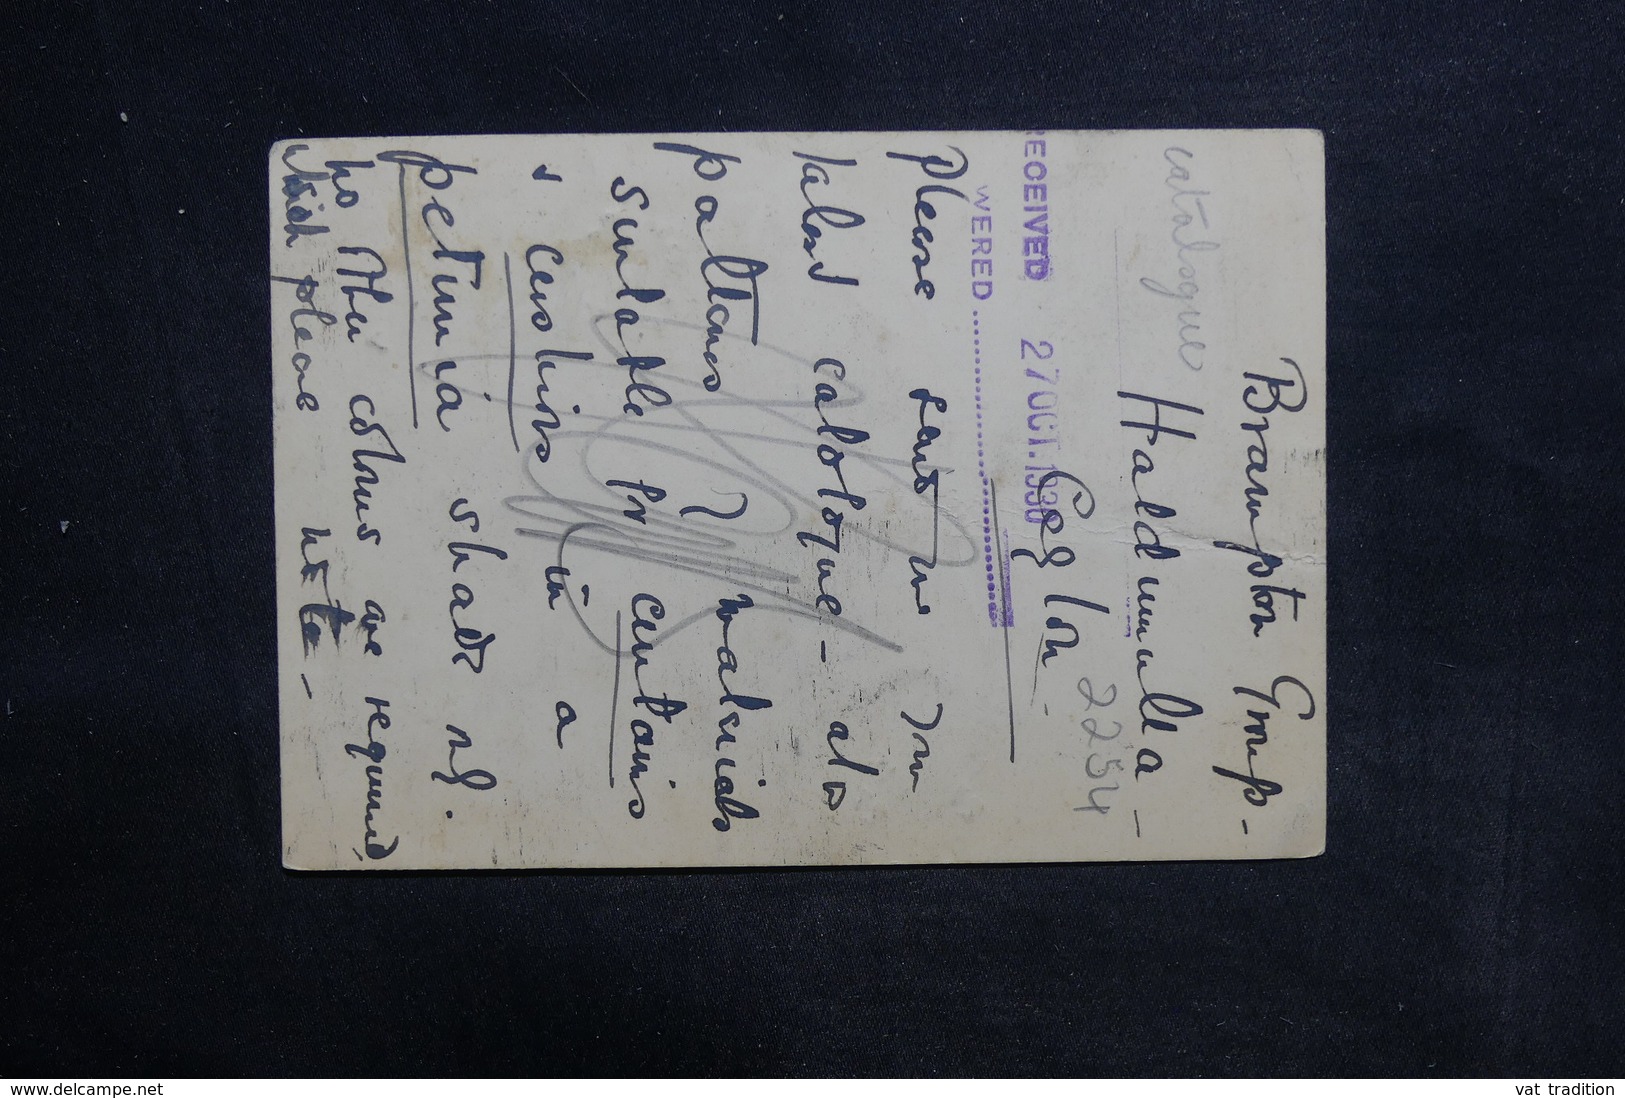 Brampton Group -
catalogue
Haldummulla -
Ceylon -
2254
RECEIVED 27 OCT. 1930
WERED
please send me your
latest catalogue - also
patterns of materials
suitable for curtains
& cushions in a
petunia shade only.
No other colours are required,
which please note -
www.delcampe.net
vat tradition